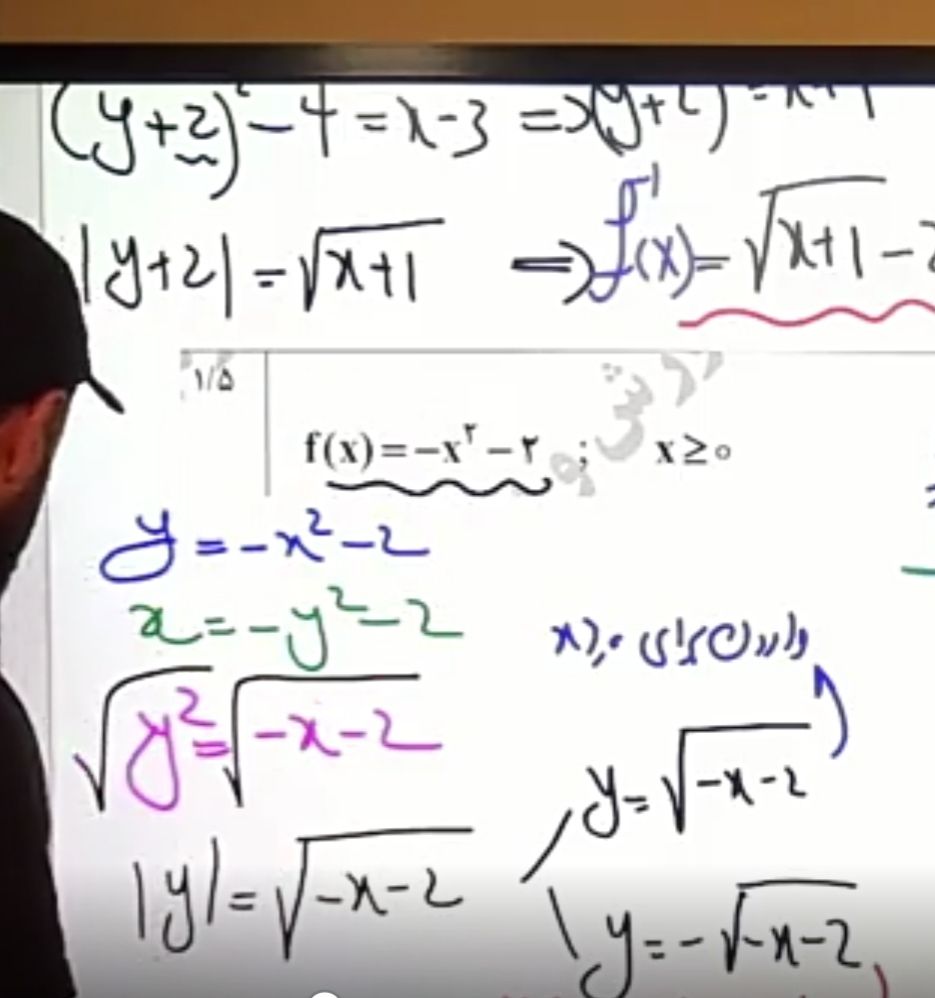 (y+2)² - 4 = x - 3 ⇒ (y+2)² = x+1
|y+2| = √(x+1) ⇒ f⁻¹(x) = √(x+1) - 2
۱/۵
f(x) = -x² - ۲ ; x ≥ ۰
y = -x² - 2
x = -y² - 2
x ≥ 0
√(y²) = √(-x-2)
y = √(-x-2)
|y| = √(-x-2)
y = -√(-x-2)